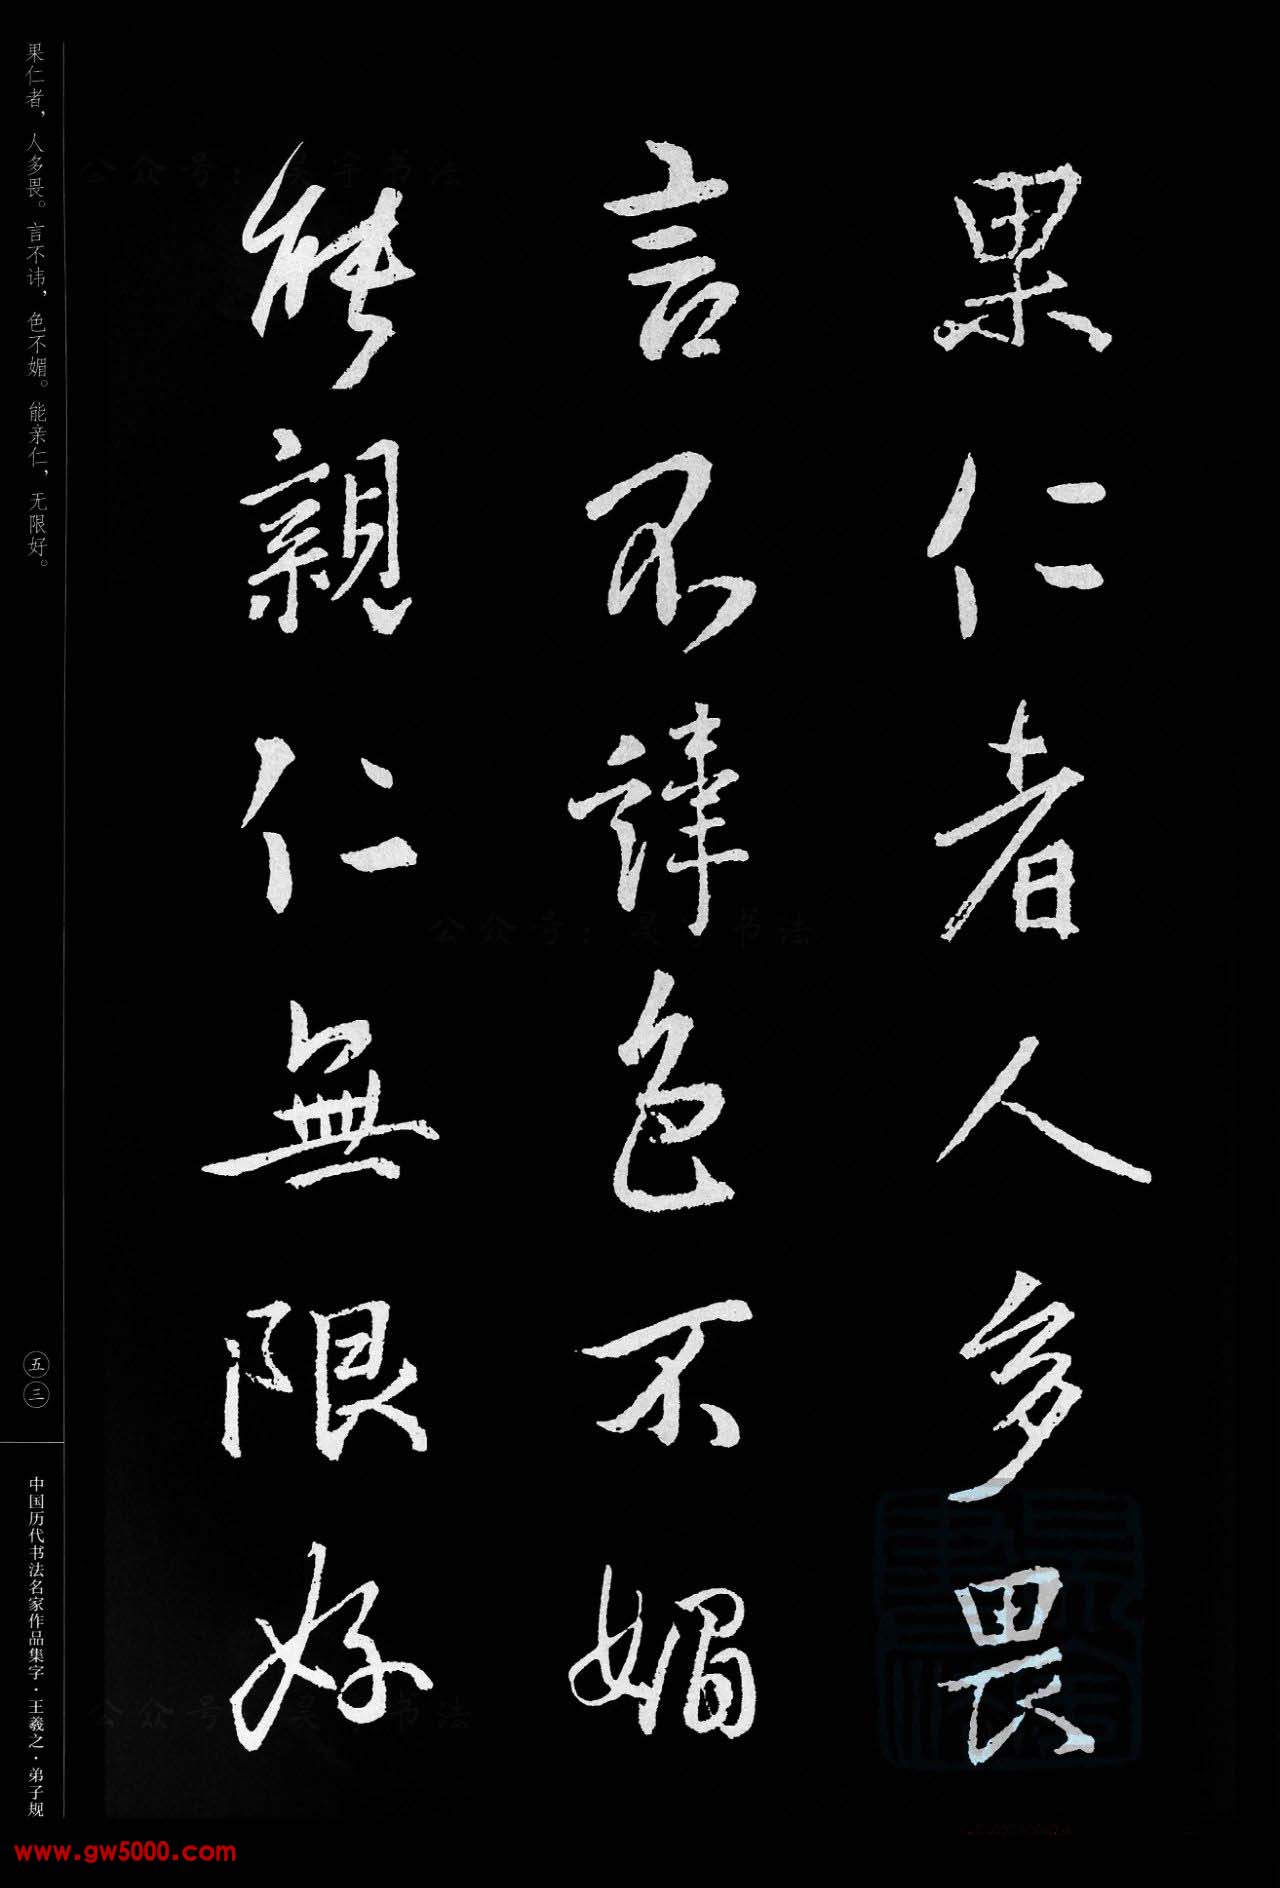 果仁者人多畏
言不諱色不媚
能親仁無限好
果仁者，人多畏。言不讳，色不媚。能亲仁，无限好。
五三
中国历代书法名家作品集字·王羲之·弟子规
公众号：昊宇书法
公众号：昊宇书法
公众号：昊宇书法
www.gw5000.com